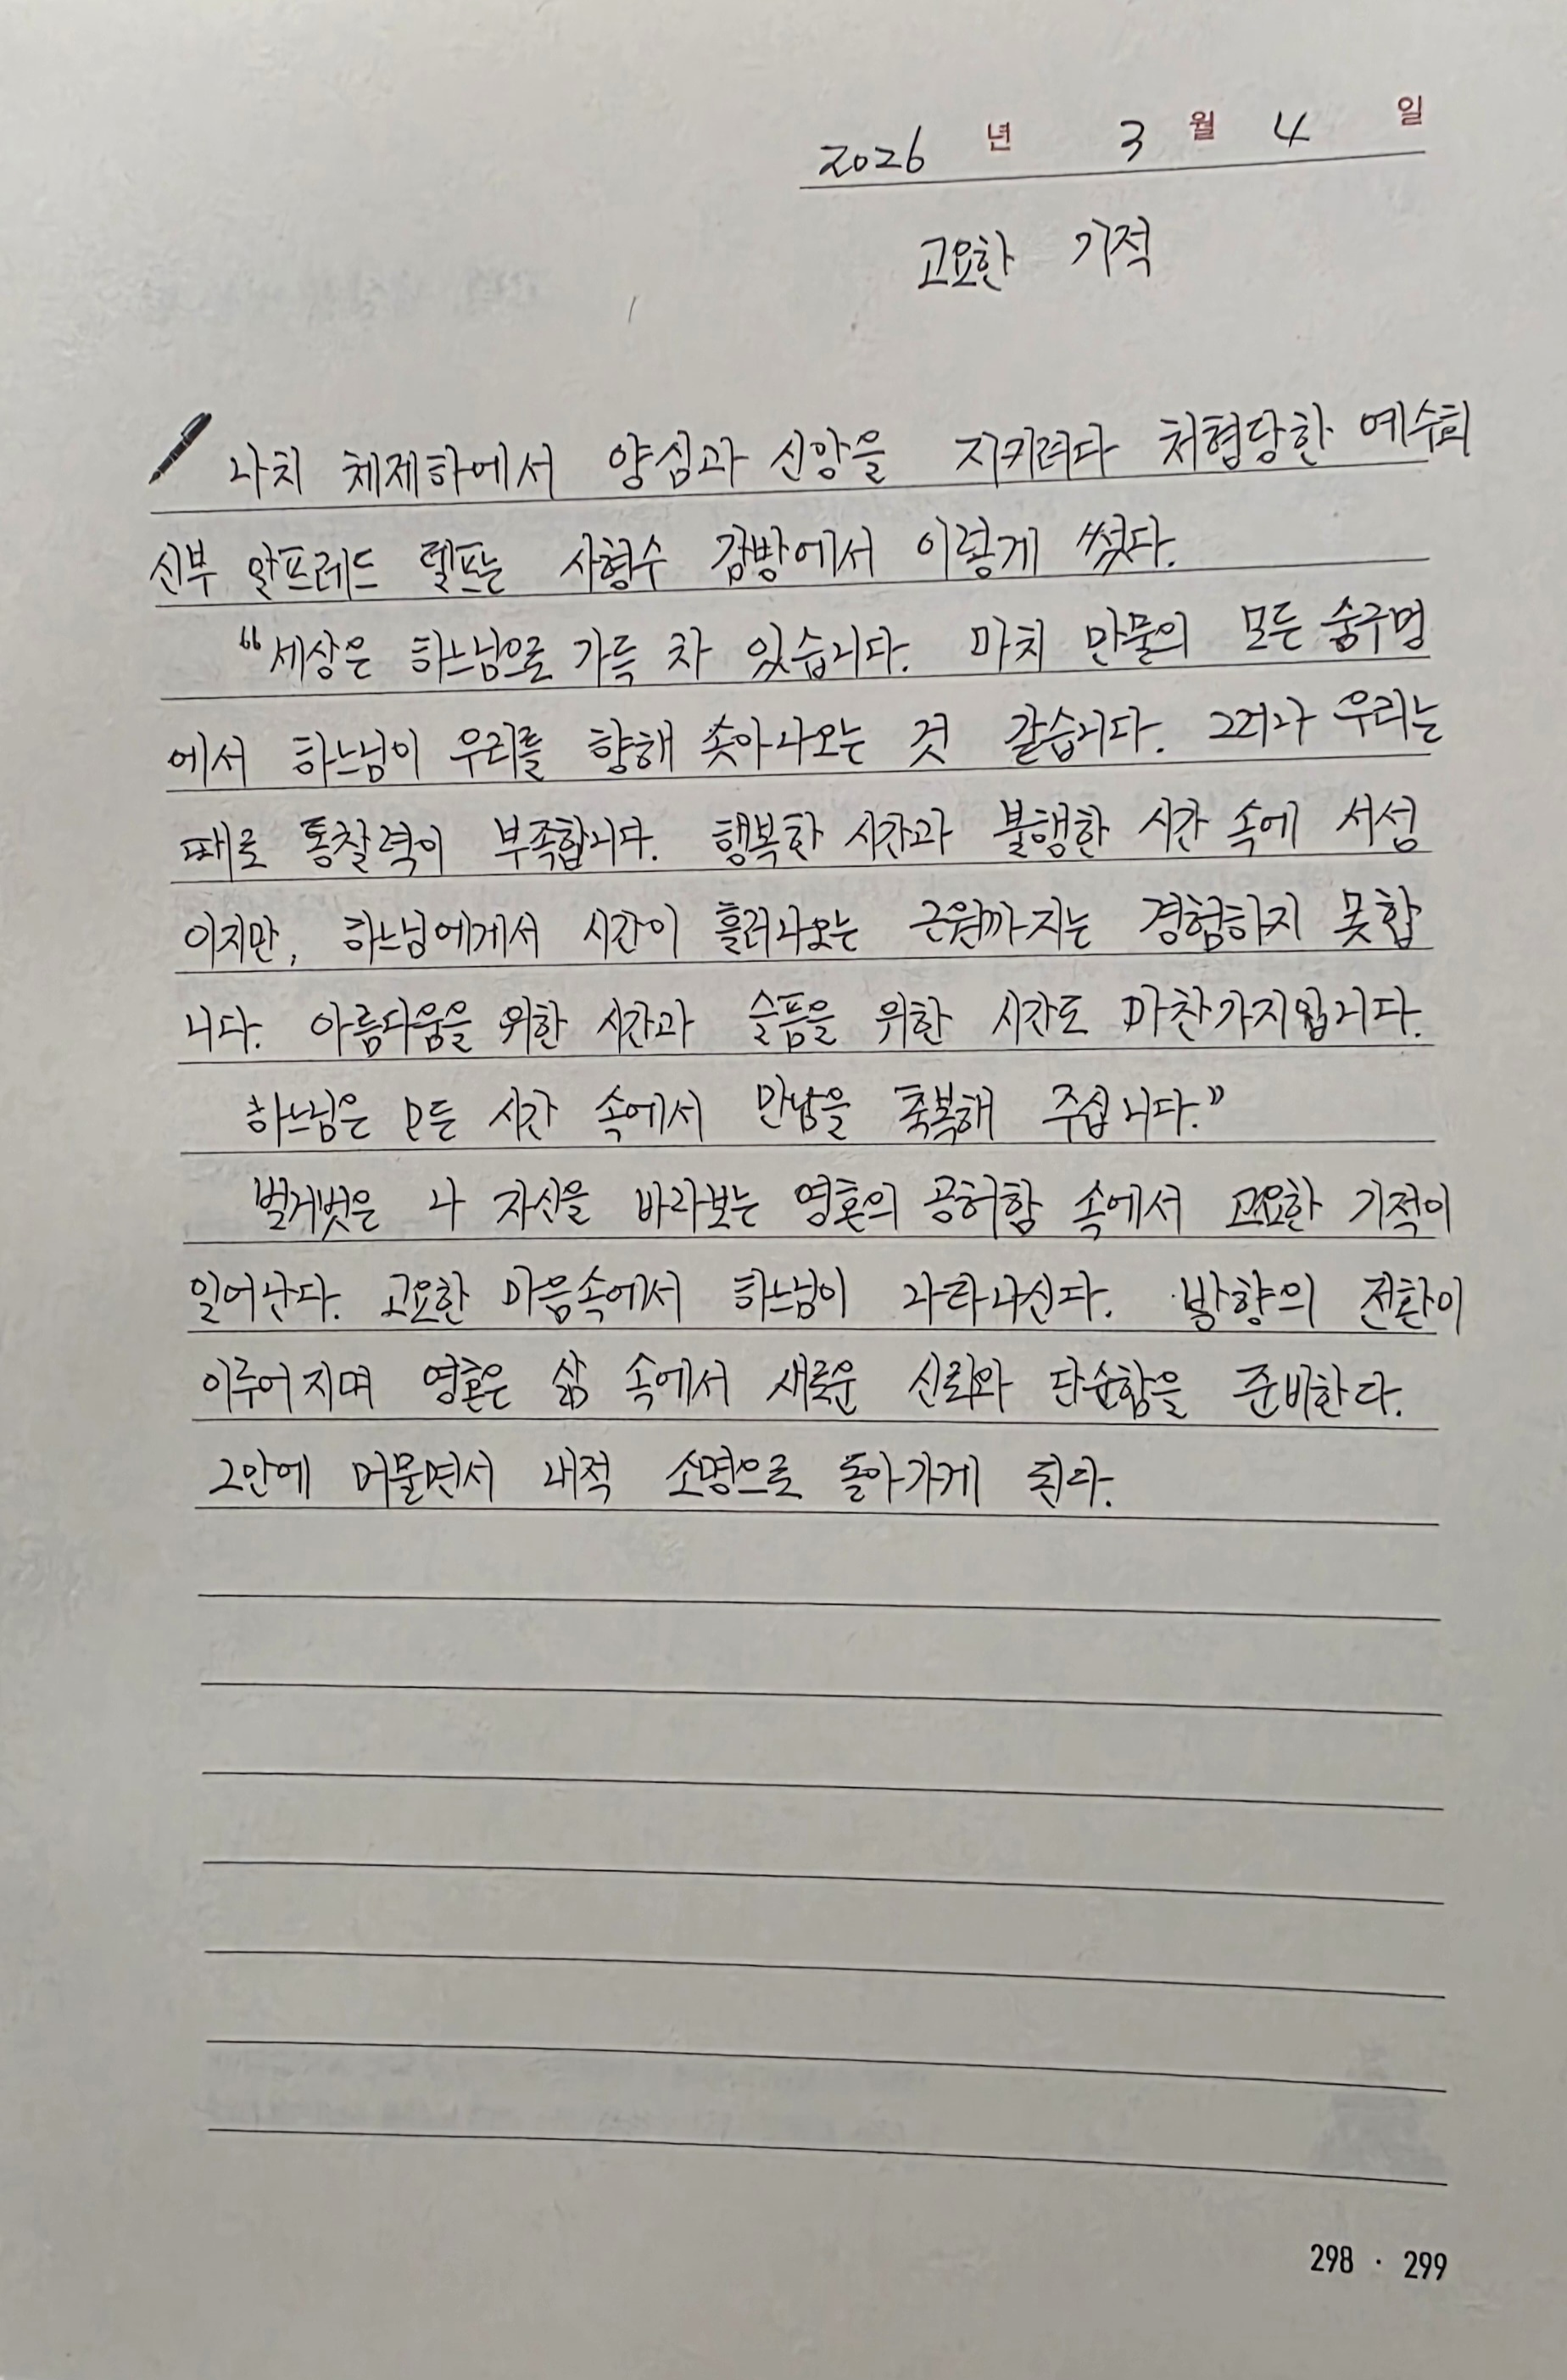 2026 년 3 월 4 일
고요한 기적
나치 체제하에서 양심과 신앙을 지키려다 처형당한 예수회
신부 알프레드 델프는 사형수 감방에서 이렇게 썼다.
“세상은 하느님으로 가득 차 있습니다. 마치 만물의 모든 숨구멍
에서 하느님이 우리를 향해 솟아나오는 것 같습니다. 그러나 우리는
때로 통찰력이 부족합니다. 행복한 시간과 불행한 시간 속에 서성
이지만, 하느님에게서 시간이 흘러나오는 근원까지는 경험하지 못합
니다. 아름다움을 위한 시간과 슬픔을 위한 시간도 마찬가지입니다.
하느님은 모든 시간 속에서 만남을 축복해 주십니다.”
벌거벗은 나 자신을 바라보는 영혼의 공허함 속에서 고요한 기적이
일어난다. 고요한 마음속에서 하느님이 나타나신다. 방향의 전환이
이루어지며 영혼은 삶 속에서 새로운 신뢰와 단순함을 준비한다.
그안에 머물면서 내적 소명으로 돌아가게 된다.
298 · 299